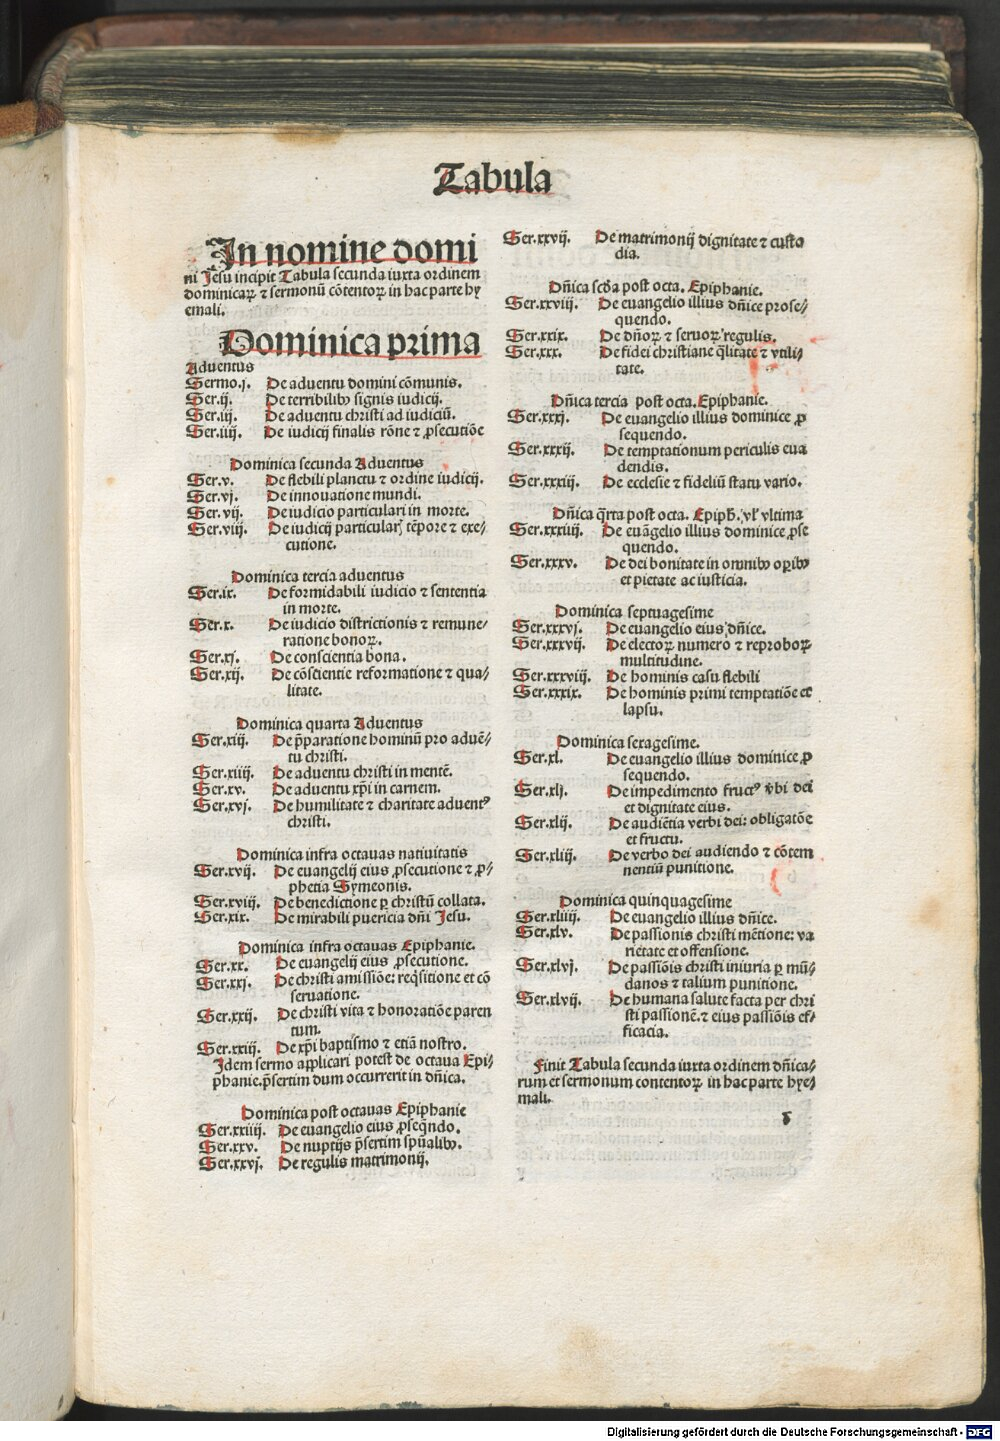 Tabula
In nomine domi
ni Jesu incipit Tabula secunda iuxta ordinem
dominicaꝝ ⁊ sermonū cōtentoꝝ in hac parte hy
emali.
Dominica prima
Aduentus
Sermo.j. De aduentu domini cōmunis.
Ser.ij. De terribilibꝰ signis iudicij.
Ser.iij. De aduentu christi ad iudiciū.
Ser.iiij. De iudicij finalis rōne ⁊ ꝓsecutiōe
Dominica secunda Aduentus
Ser.v. De flebili planctu ⁊ ordine iudicij.
Ser.vj. De innouatione mundi.
Ser.vij. De iudicio particulari in morte.
Ser.viij. De iudicij particularꝭ tēpore ⁊ exe⸗
cutione.
Dominica tercia aduentus
Ser.ix. De formidabili iudicio ⁊ sententia
in morte.
Ser.x. De iudicio districtionis ⁊ remune⸗
ratione bonoꝝ.
Ser.xj. De conscientia bona.
Ser.xij. De cōscientie reformatione ⁊ qua⸗
litate.
Dominica quarta Aduentus
Ser.xiij. De p̄paratione hominū pro aduē⸗
tu christi.
Ser.xiiij. De aduentu christi in mentē.
Ser.xv. De aduentu xp̄i in carnem.
Ser.xvj. De humilitate ⁊ charitate aduentꝰ
christi.
Dominica infra octauas natiuitatis
Ser.xvij. De euangelij eius ꝓsecutione ⁊ ꝓ⸗
phetia Symeonis.
Ser.xviij. De benedictione ꝑ christū collata.
Ser.xix. De mirabili puericia dn̄i Jesu.
Dominica infra octauas Epiphanie.
Ser.xx. De euangelij eius ꝓsecutione.
Ser.xxj. De christi amissiōe: reqͥsitione et cō
seruatione.
Ser.xxij. De christi vita ⁊ honoratiōe paren
tum.
Ser.xxiij. De xp̄i baptismo ⁊ etiā nostro.
Idem sermo applicari potest de octaua Epi⸗
phanie.p̄sertim dum occurrerit in dn̄ica.
Dominica post octauas Epiphanie
Ser.xxiiij. De euangelio eius ꝓseqn̄do.
Ser.xxv. De nuptijs p̄sertim spūalibꝰ.
Ser.xxvj. De regulis matrimonij.
Ser.xxvij. De matrimonij dignitate ⁊ custo
dia.
Dn̄ica scd̄a post octa. Epiphanie.
Ser.xxviij. De euangelio illius dn̄ice prose⸗
quendo.
Ser.xxix. De dn̄oꝝ ⁊ seruoꝝ regulis.
Ser.xxx. De fidei christiane q̄litate ⁊ vtili⸗
tate.
Dn̄ica tercia post octa. Epiphanie.
Ser.xxxj. De euangelio illius dominice ꝓ
sequendo.
Ser.xxxij. De temptationum periculis eua
dendis.
Ser.xxxiij. De ecclesie ⁊ fideliū statu vario.
Dn̄ica q̄rta post octa. Epiph̄. vl' vltima
Ser.xxxiiij. De euāgelio illius dominice ꝓse
quendo.
Ser.xxxv. De dei bonitate in omnibꝰ oꝑibꝰ
et pietate ac iusticia.
Dominica septuagesime
Ser.xxxvj. De euangelio eius dn̄ice.
Ser.xxxvij. De electoꝝ numero ⁊ reproboꝝ
multitudine.
Ser.xxxviij. De hominis casu flebili
Ser.xxxix. De hominis primi temptatiōe et
lapsu.
Dominica sexagesime.
Ser.xl. De euangelio illius dominice ꝓ
sequendo.
Ser.xlj. De impedimento fructꝰ v̄bi dei
et dignitate eius.
Ser.xlij. De audiētia verbi dei: obligatōe
et fructu.
Ser.xliij. De verbo dei audiendo ⁊ cōtem
nentiū punitione.
Dominica quinquagesime
Ser.xliiij. De euangelio illius dn̄ice.
Ser.xlv. De passionis christi mētione: va
rietate et offensione.
Ser.xlvj. De passiōis christi iniuria ꝑ mū⸗
danos ⁊ talium punitione.
Ser.xlvij. De humana salute facta per chri
sti passionē.⁊ eius passiōis ef⸗
ficacia.
Finit Tabula secunda iuxta ordinem dn̄ica⸗
rum et sermonum contentoꝝ in hac parte hye⸗
mali.
Digitalisierung gefördert durch die Deutsche Forschungsgemeinschaft - DFG